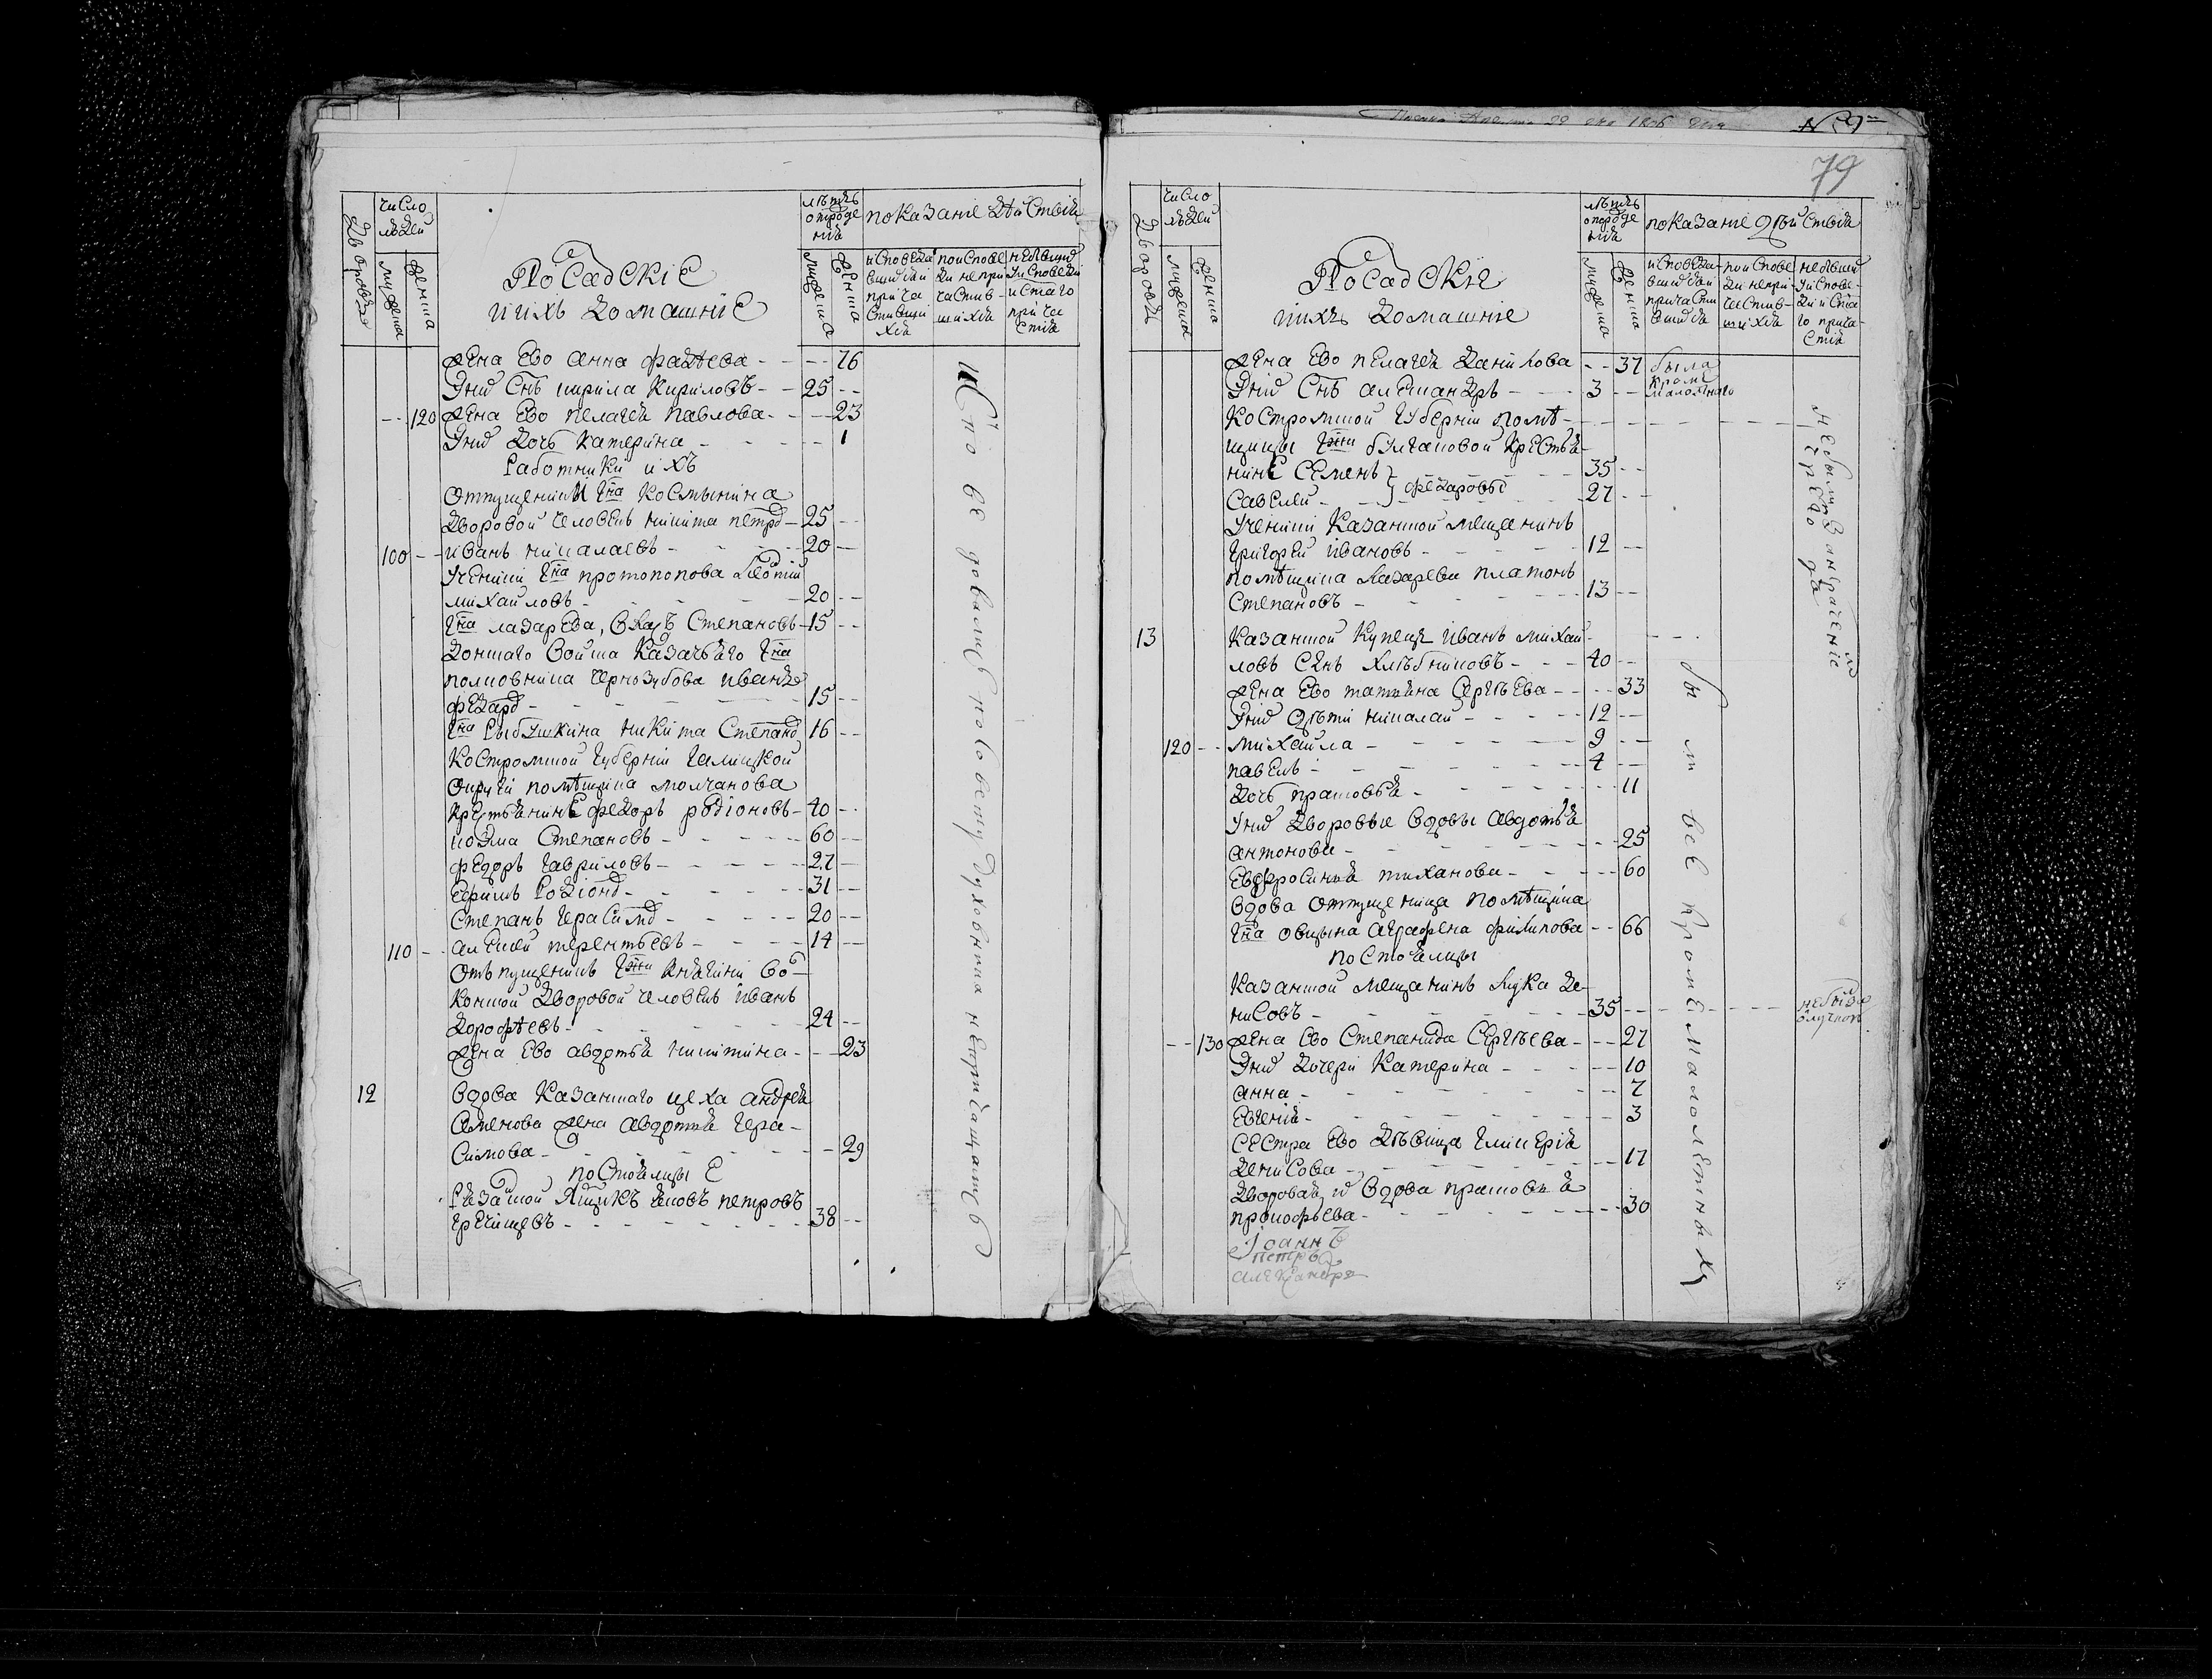 Дворовъ
число людей
мужеска
женска
Посадскіе
иихъ домашніе
лѣтъ отрожденія
мужеска
женска
показаніе дѣйствія
исповедавшихся и причастившихся
поисповеди не причастившихся
небывших уисповеди истаго причастія
жена Ево анна фадѣева 76
Унихъ Снъ кирила Кириловъ 25
120 жена Ево пелагея павлова 23
Унихъ Дочь катерина 1
Работники ихъ
Отпущенникъ Гна Космынина
дворовой человекъ никита петровъ 25
100 иванъ николаевъ 20
Ученики Гна протопопова
михайловъ 20
Гна лазарева, Власъ Степановъ 15
донскаго войска Казачьяго Гна
полковника чернозубова иванъ
федоровъ 15
Гна Рыбушкина никита Степановъ 16
Костромской Губерніи Галицкой
округи помѣщика молчанова
крестьянинъ федоръ родіоновъ 40
козма Степановъ 60
федоръ Гавриловъ 27
Ефимъ Родіоновъ 31
Степанъ Герасимовъ 20
110 алексей терентьевъ 14
Отъпущенникъ Гжи княгини Вол-
конской дворовой человекъ иванъ
дорофѣевъ 24
жена Ево авдотья никитина 23
12 вдова Казанскаго цеха андрея
Семенова жена авдотья Гера-
симова 29
постоялцы
Рязанской Ящикъ яковъ петровъ
гречищевъ 38
исповедались ноповсовету духовника непричащались
79
Дворовъ
число людей
мужеска
женска
Посадскіе
иихъ домашніе
лѣтъ отрожденія
мужеска
женска
показаніе дѣйствія
исповедавшихся и причастившихся
поисповеди непричастившихся
небывших уисповеди и Стаго причастія
жена Ево пелагея данилова 37 была
Унихъ Снъ александръ 3 кроме малолѣтнаго
Костромской Губерніи помѣ-
щицы Гжи булгаковой крестья-
нинъ Семенъ 35
федоровы
Савелей 27
Ученики Казанской мещанинъ
григорей ивановъ 12
помѣщика лазарева платонъ
Степановъ 13
небыли за нерачением
13 Казанской купецъ иванъ михай-
ловъ Снъ хлѣбниковъ 40
жена Ево татьяна Сергѣева 33
Унихъ дѣти николай 12
120 михайла 9
павелъ 4
дочь прасковья 11
Унихъ дворовые вдовы авдотья
антонова 25
Евфросинья тиханова 60
вдова отпущеница помѣщика
Гна овцына аграфена филипова 66
постоялцы
Казанской мещанинъ лука де-
нисовъ 35
небылъ
130 жена Ево Степанида Сергѣева 27
Унихъ дочери катерина 10
анна 7
Евгенія 3
Сестра Ево дѣвица Гликерія
денисова 17
дворовая и вдова прасковья
прокофьева 30
были все кроме малолетныхъ
Іоаннъ
петръ
александръ